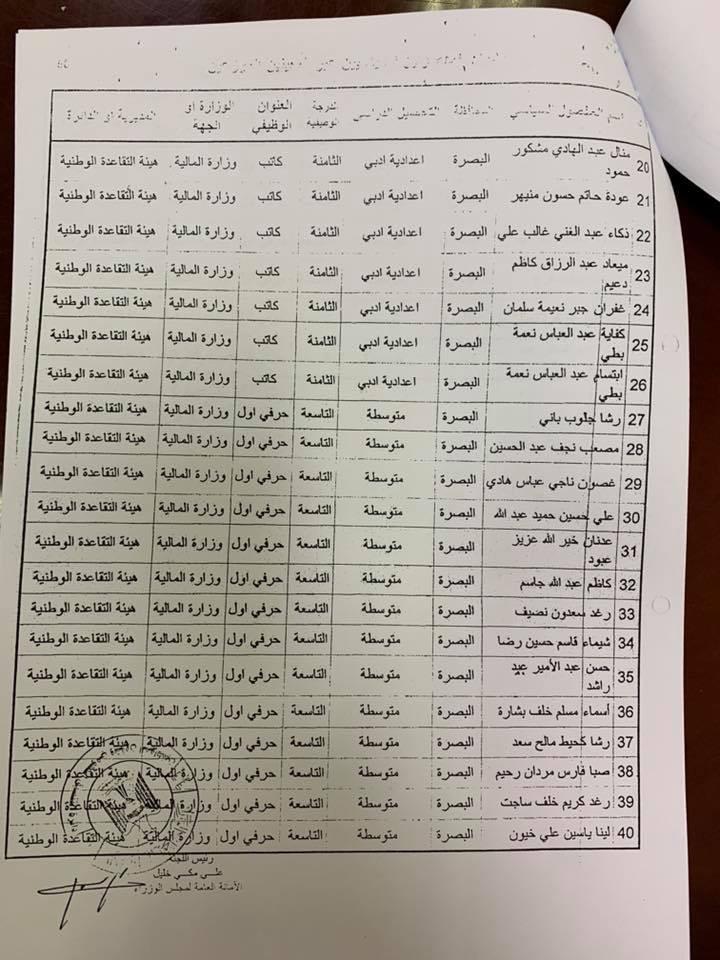 ت اسم المفصول السياسي المحافظة التحصيل الدراسي الدرجة الوظيفية العنوان الوظيفي الوزارة او الجهة المديرية او الدائرة
20 منال عبد الهادي مشكور حمود البصرة اعدادية ادبي الثامنة كاتب وزارة المالية هيئة التقاعدة الوطنية
21 عودة حاتم حسون منيهر البصرة اعدادية ادبي الثامنة كاتب وزارة المالية هيئة التقاعدة الوطنية
22 ذكاء عبد الغني غالب علي البصرة اعدادية ادبي الثامنة كاتب وزارة المالية هيئة التقاعدة الوطنية
23 ميعاد عبد الرزاق كاظم دعيم البصرة اعدادية ادبي الثامنة كاتب وزارة المالية هيئة التقاعدة الوطنية
24 غفران جبر نعيمة سلمان البصرة اعدادية ادبي الثامنة كاتب وزارة المالية هيئة التقاعدة الوطنية
25 كفاية عبد العباس نعمة بطي البصرة اعدادية ادبي الثامنة كاتب وزارة المالية هيئة التقاعدة الوطنية
26 ابتسام عبد العباس نعمة بطي البصرة اعدادية ادبي الثامنة كاتب وزارة المالية هيئة التقاعدة الوطنية
27 رشا جلوب باني البصرة متوسطة التاسعة حرفي اول وزارة المالية هيئة التقاعدة الوطنية
28 مصعب نجف عبد الحسين البصرة متوسطة التاسعة حرفي اول وزارة المالية هيئة التقاعدة الوطنية
29 غصون ناجي عباس هادي البصرة متوسطة التاسعة حرفي اول وزارة المالية هيئة التقاعدة الوطنية
30 علي حسين حميد عبد الله البصرة متوسطة التاسعة حرفي اول وزارة المالية هيئة التقاعدة الوطنية
31 عدنان خير الله عزيز عبود البصرة متوسطة التاسعة حرفي اول وزارة المالية هيئة التقاعدة الوطنية
32 كاظم عبد الله جاسم البصرة متوسطة التاسعة حرفي اول وزارة المالية هيئة التقاعدة الوطنية
33 رغد سعدون نصيف البصرة متوسطة التاسعة حرفي اول وزارة المالية هيئة التقاعدة الوطنية
34 شيماء قاسم حسين رضا البصرة متوسطة التاسعة حرفي اول وزارة المالية هيئة التقاعدة الوطنية
35 حسن عبد الأمير عيد راشد البصرة متوسطة التاسعة حرفي اول وزارة المالية هيئة التقاعدة الوطنية
36 أسماء مسلم خلف بشارة البصرة متوسطة التاسعة حرفي اول وزارة المالية هيئة التقاعدة الوطنية
37 رشا كحيط مالح سعد البصرة متوسطة التاسعة حرفي اول وزارة المالية هيئة التقاعدة الوطنية
38 صبا فارس مردان رحيم البصرة متوسطة التاسعة حرفي اول وزارة المالية هيئة التقاعدة الوطنية
39 رغد كريم خلف ساجت البصرة متوسطة التاسعة حرفي اول وزارة المالية هيئة التقاعدة الوطنية
40 لينا ياسين علي خيون البصرة متوسطة التاسعة حرفي اول وزارة المالية هيئة التقاعدة الوطنية
رئيس اللجنة
علي مكي خليل
الأمانة العامة لمجلس الوزراء